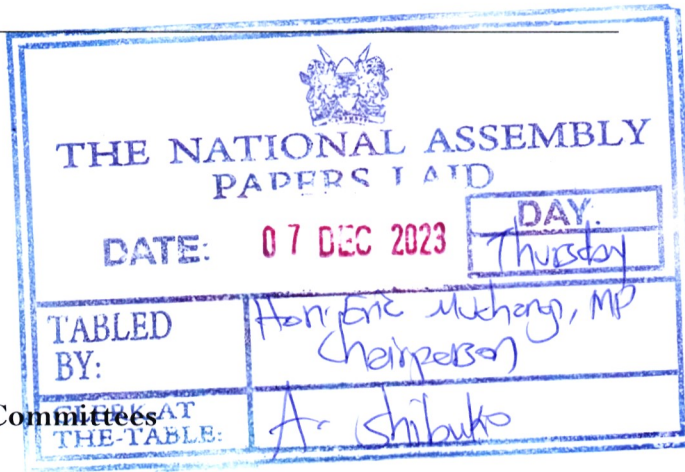 THE NATIONAL ASSEMBLY
PAPERS LAID
DATE: 07 DEC 2023
DAY:
Thursday
TABLED BY:
Hon. Eric Muchangi, MP
Chairperson
Committees
CLERK AT THE-TABLE:
A. Shibuko